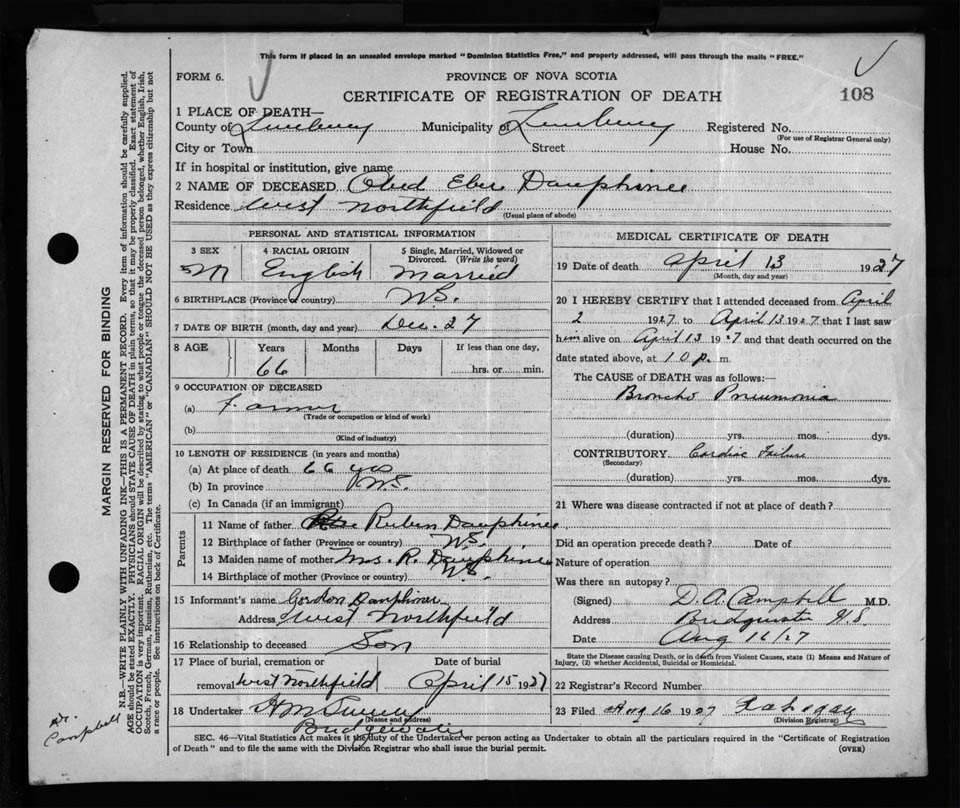 This form if placed in an unsealed envelope marked "Dominion Statistics Free," and properly addressed, will pass through the mails "FREE."
FORM 6.
PROVINCE OF NOVA SCOTIA
CERTIFICATE OF REGISTRATION OF DEATH
108
1 PLACE OF DEATH—
County of Lunenburg Municipality of Lunenburg Registered No.
(For use of Registrar General only)
City or Town Street House No.
If in hospital or institution, give name
2 NAME OF DECEASED Obed Eber Dauphinee
Residence West Northfield
(Usual place of abode)
PERSONAL AND STATISTICAL INFORMATION
3 SEX 4 RACIAL ORIGIN 5 Single, Married, Widowed or Divorced. (Write the word)
M English Married
6 BIRTHPLACE (Province or country) N.S.
7 DATE OF BIRTH (month, day and year) Dec. 27
8 AGE Years Months Days If less than one day,
66 hrs. or min.
9 OCCUPATION OF DECEASED
(a) Farmer
(Trade or occupation or kind of work)
(b)
(Kind of industry)
10 LENGTH OF RESIDENCE (in years and months)
(a) At place of death 66 yrs
(b) In province N.S.
(c) In Canada (if an immigrant)
Parents
11 Name of father Ruben Dauphinee
12 Birthplace of father (Province or country) N.S.
13 Maiden name of mother Mrs. R. Dauphinee
14 Birthplace of mother (Province or country) N.S.
15 Informant's name Gordon Dauphinee
Address West Northfield
16 Relationship to deceased Son
17 Place of burial, cremation or Date of burial
removal West Northfield April 15 1927
18 Undertaker
(Name and address)
Bridgewater
MEDICAL CERTIFICATE OF DEATH
19 Date of death April 13 1927
(Month, day and year)
20 I HEREBY CERTIFY that I attended deceased from April
2 1927 to April 13 1927 that I last saw
him alive on April 13 1927 and that death occurred on the
date stated above, at 10 p. m.
The CAUSE of DEATH was as follows:—
Broncho Pneumonia
(duration) yrs. mos. dys.
CONTRIBUTORY Cardiac Failure
(Secondary)
(duration) yrs. mos. dys.
21 Where was disease contracted if not at place of death?
Did an operation precede death? Date of
Nature of operation
Was there an autopsy?
(Signed) D. A. Campbell M.D.
Address Bridgewater N.S.
Date Aug 16/27
State the Disease causing Death, or in death from Violent Causes, state (1) Means and Nature of
Injury, (2) whether Accidental, Suicidal or Homicidal.
22 Registrar's Record Number
23 Filed Aug 16 1927
(Division Registrar)
SEC. 46—Vital Statistics Act makes it the duty of the Undertaker or person acting as Undertaker to obtain all the particulars required in the "Certificate of Registration
of Death" and to file the same with the Division Registrar who shall issue the burial permit.
(OVER)
MARGIN RESERVED FOR BINDING
N.B.—WRITE PLAINLY WITH UNFADING INK—THIS IS A PERMANENT RECORD. Every item of information should be carefully supplied.
AGE should be stated EXACTLY. PHYSICIANS should STATE CAUSE OF DEATH in plain terms, so that it may be properly classified. Exact statement of
OCCUPATION is very important. RACIAL ORIGIN will be described by stating to what people or tongue the deceased person belonged, whether English, Irish,
Scotch, French, German, Russian, Ruthenian, etc. The terms "AMERICAN" or "CANADIAN" SHOULD NOT BE USED as they express citizenship but not
a race or people. See instructions on back of Certificate.
Dr.
Campbell